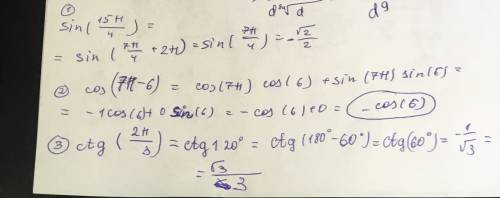 d³√d
dg
①
sin(15π/4) =
= sin(7π/4 + 2π) = sin(7π/4) = -√2/2
② cos(7π-6) = cos(7π) cos(6) + sin(7π) sin(6) =
= -1cos(6) + 0 sin(6) = -cos(6)+0 = -cos(6)
③ ctg(2π/3) = ctg 120° = ctg(180°-60°) = ctg(60°) = -1/√3 =
= √3/3